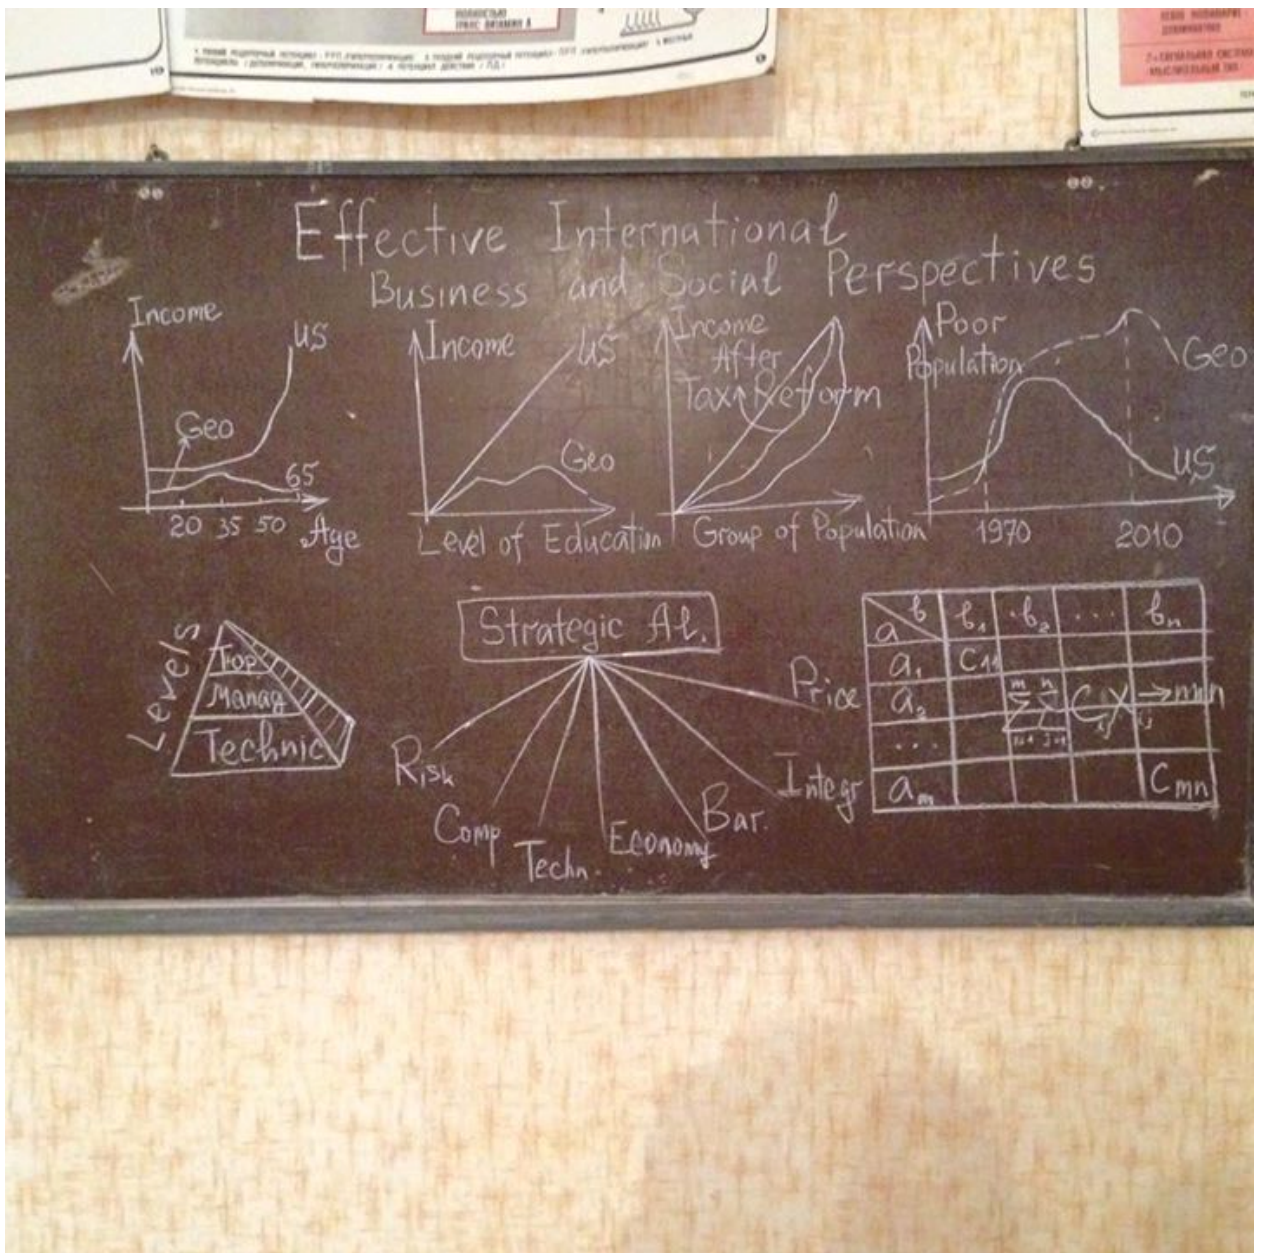 ПОЛНОСТЬЮ
ТРАНС-ВИТАМИН А
Effective International
Business and Social Perspectives
Income
US
Geo
65
20 35 50 Age
Income
US
Geo
Level of Education
Income
After
Tax Reform
Group of Population
Poor
Population
Geo
US
1970 2010
Levels
Top
Manag
Technic
Strategic Al.
Risk
Comp
Techn.
Economy
Bar.
Integr
Price
a b b₁ b₂ ... bₙ
a₁ C₁₁
a₂ Σ Σ Cᵢⱼ Xᵢⱼ → min
...
aₘ Cₘₙ